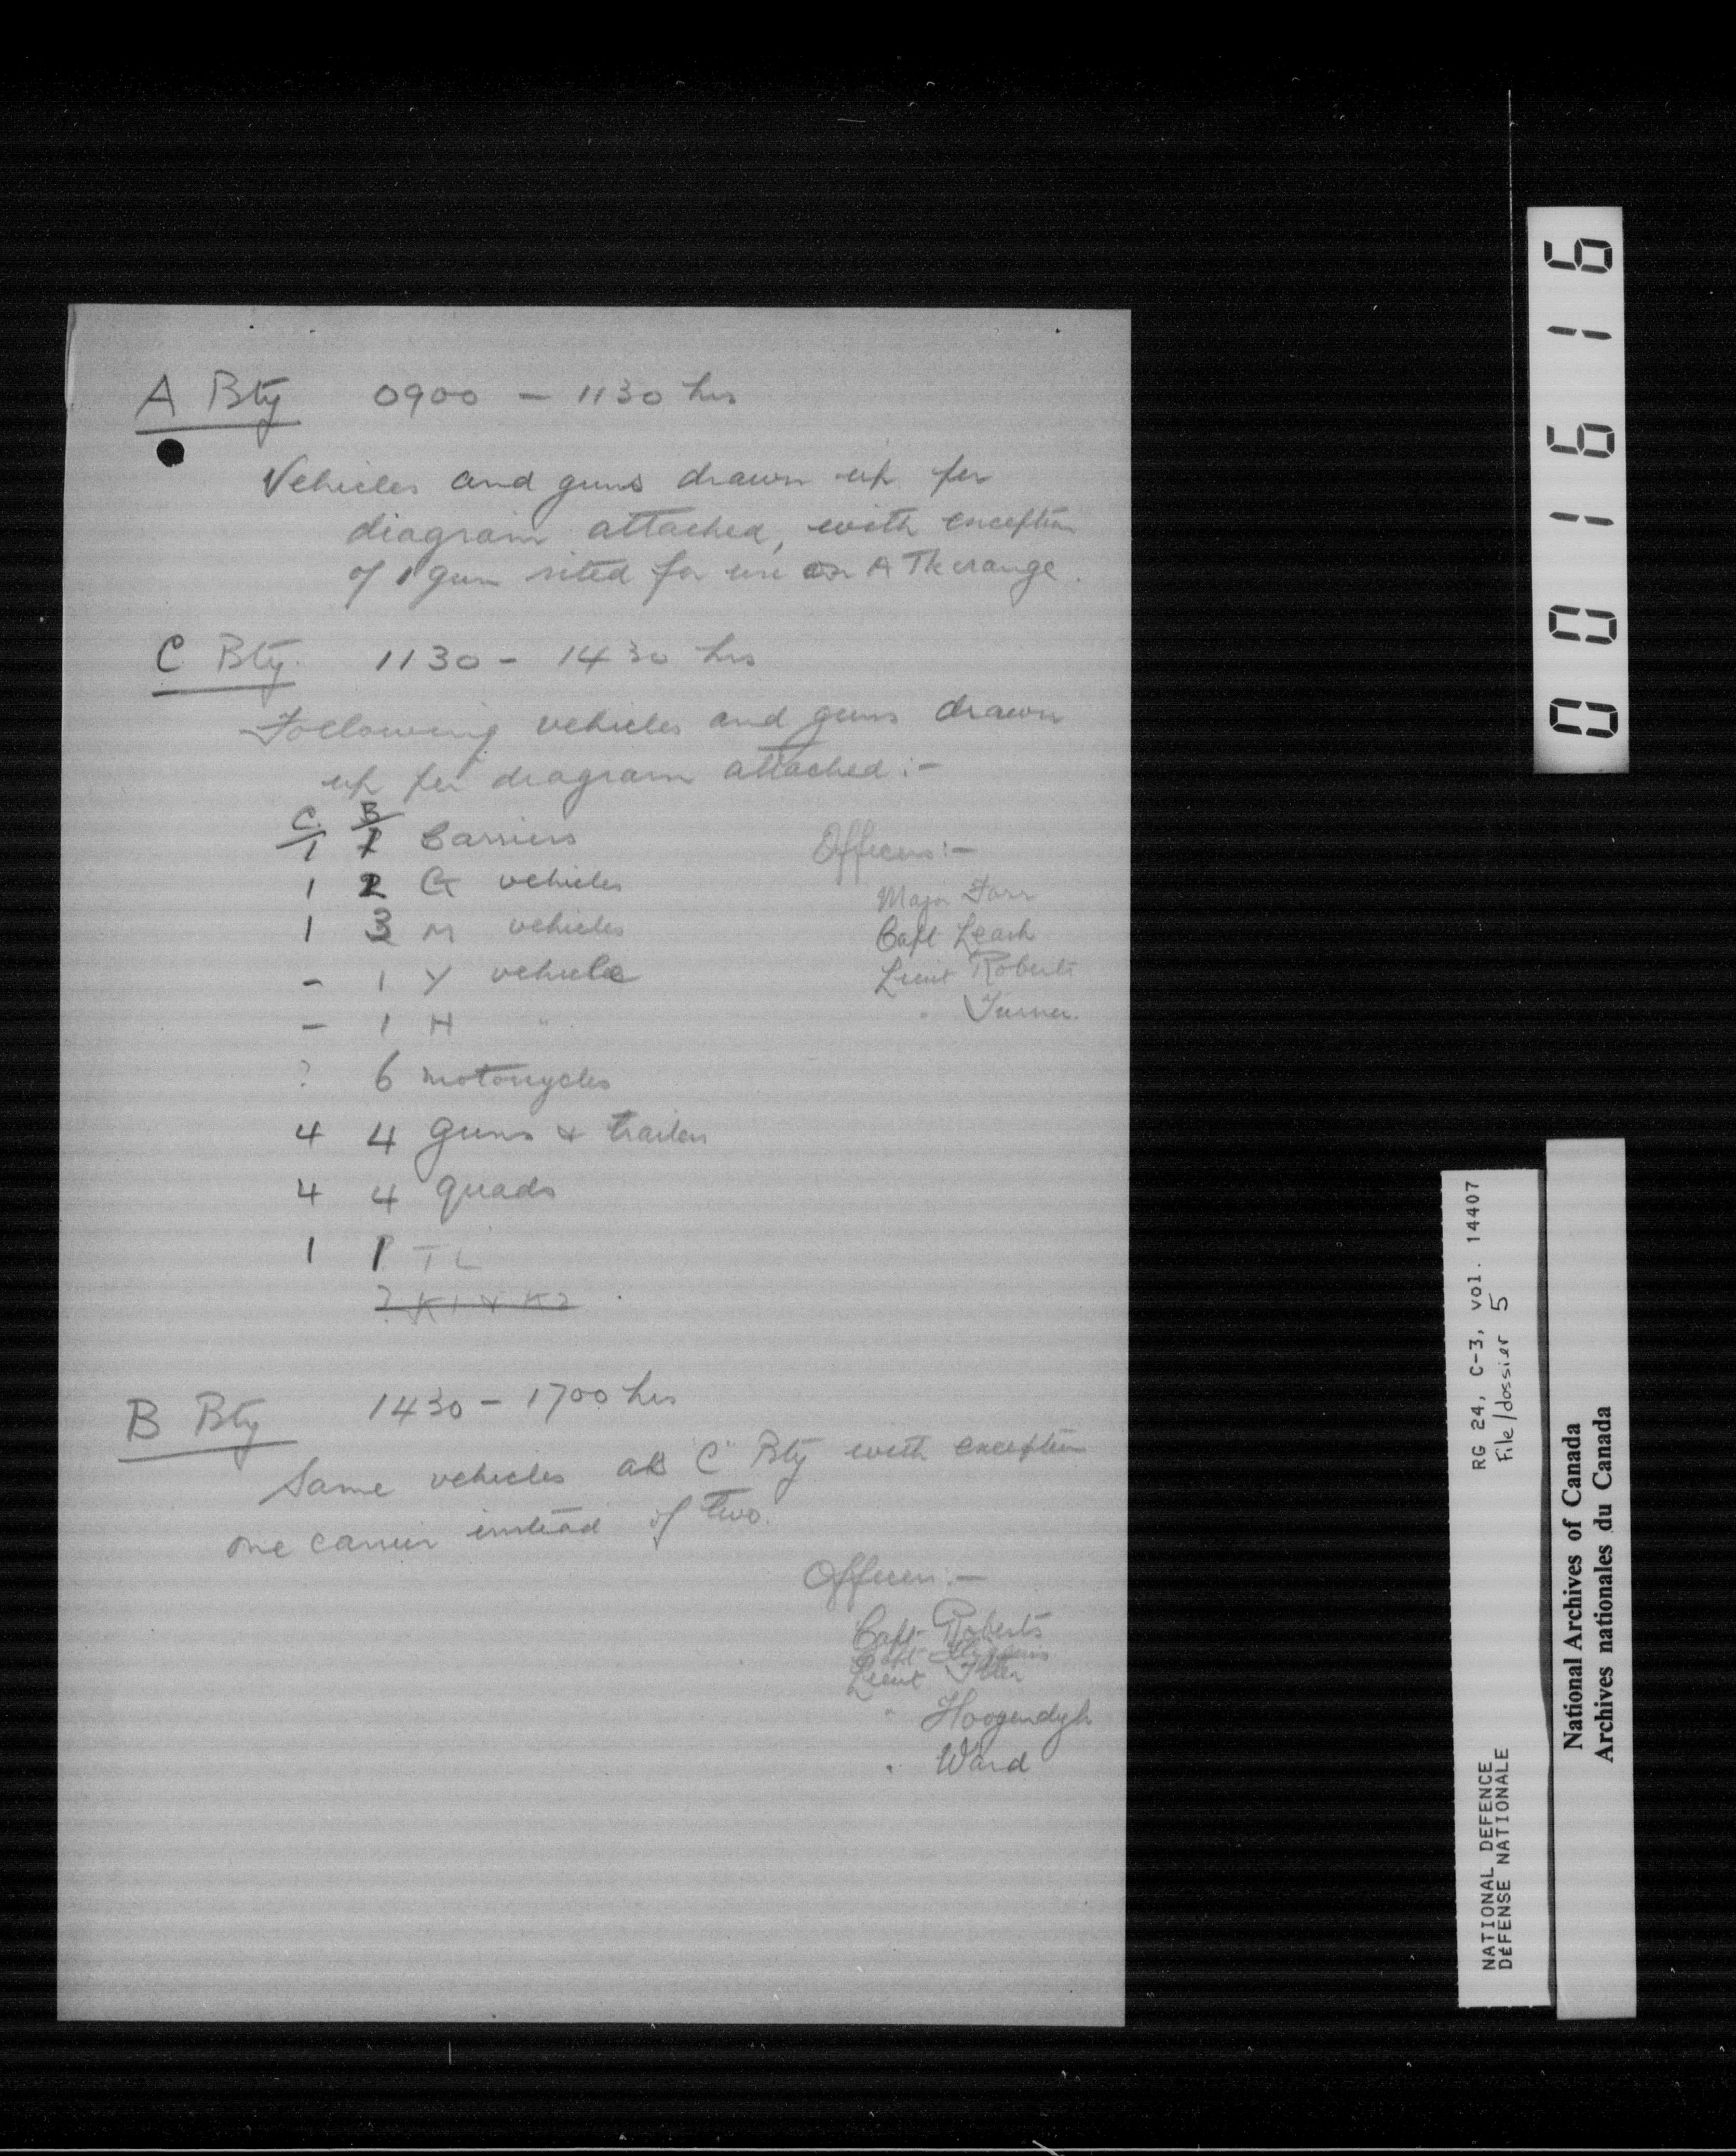 A Bty 0900 - 1130 hrs
Vehicles and guns drawn up per
diagram attached, with exception
of 1 gun sited for use on A Tk range.
C Bty. 1130 - 1430 hrs
Following vehicles and guns drawn
up per diagram attached :-
C B
1 1 Carriers
1 2 G vehicles
1 3 M vehicles
- 1 Y vehicle
- 1 H "
? 6 motorcycles
4 4 guns & trailers
4 4 quads
1 1 TL
2 K1 & K2
Officers :-
Major Farr
Capt Leash
Lieut Roberts
" Turner.
B Bty 1430 - 1700 hrs
Same vehicles as "C" Bty with exception
one carrier instead of two.
Officers :-
Capt Roberts
Capt Higgins
Lieut
" Hoogendyk
" Ward
001616
RG 24, C-3, vol. 14407
File/dossier 5
NATIONAL DEFENCE
DÉFENSE NATIONALE
National Archives of Canada
Archives nationales du Canada